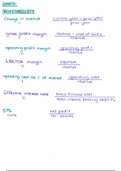 Change in revenue
current year - prior year
prior year
gross profit margin
revenue - cost of sales
revenue
operating profit margin
operating profit
revenue
EBITDA margin
EBITDA
revenue
operating cost as % of revenue
operating cost
revenue
Effective interest rate
total finance cost
EPS
net profit
no. shares